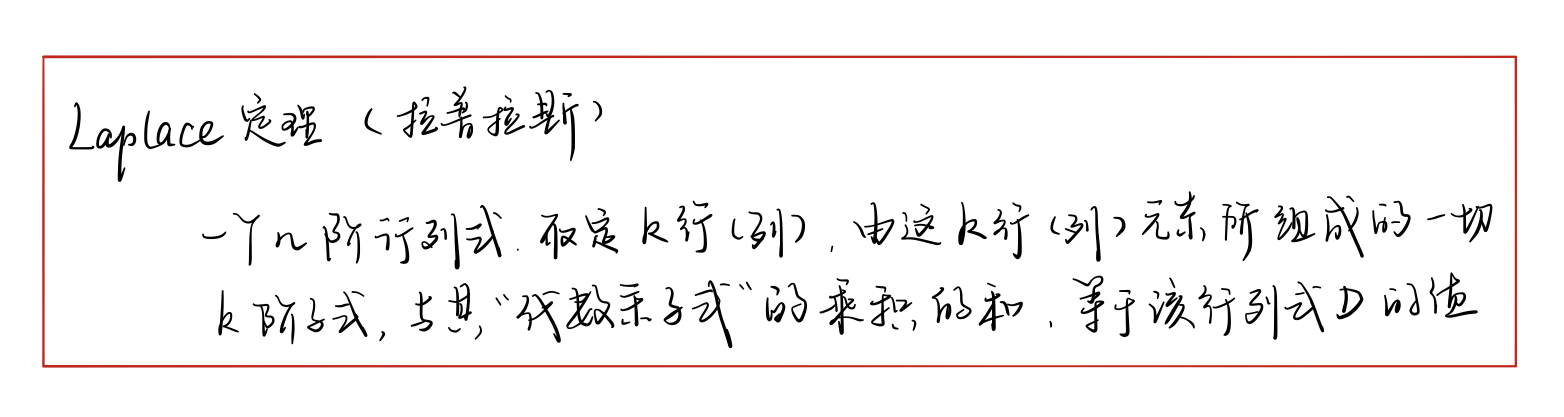 Laplace 定理 (拉普拉斯)
一个 n 阶行列式. 取定 k行(列), 由这 k行(列)元素所组成的一切
k 阶子式, 与其“代数余子式”的乘积的和, 等于该行列式 D 的值